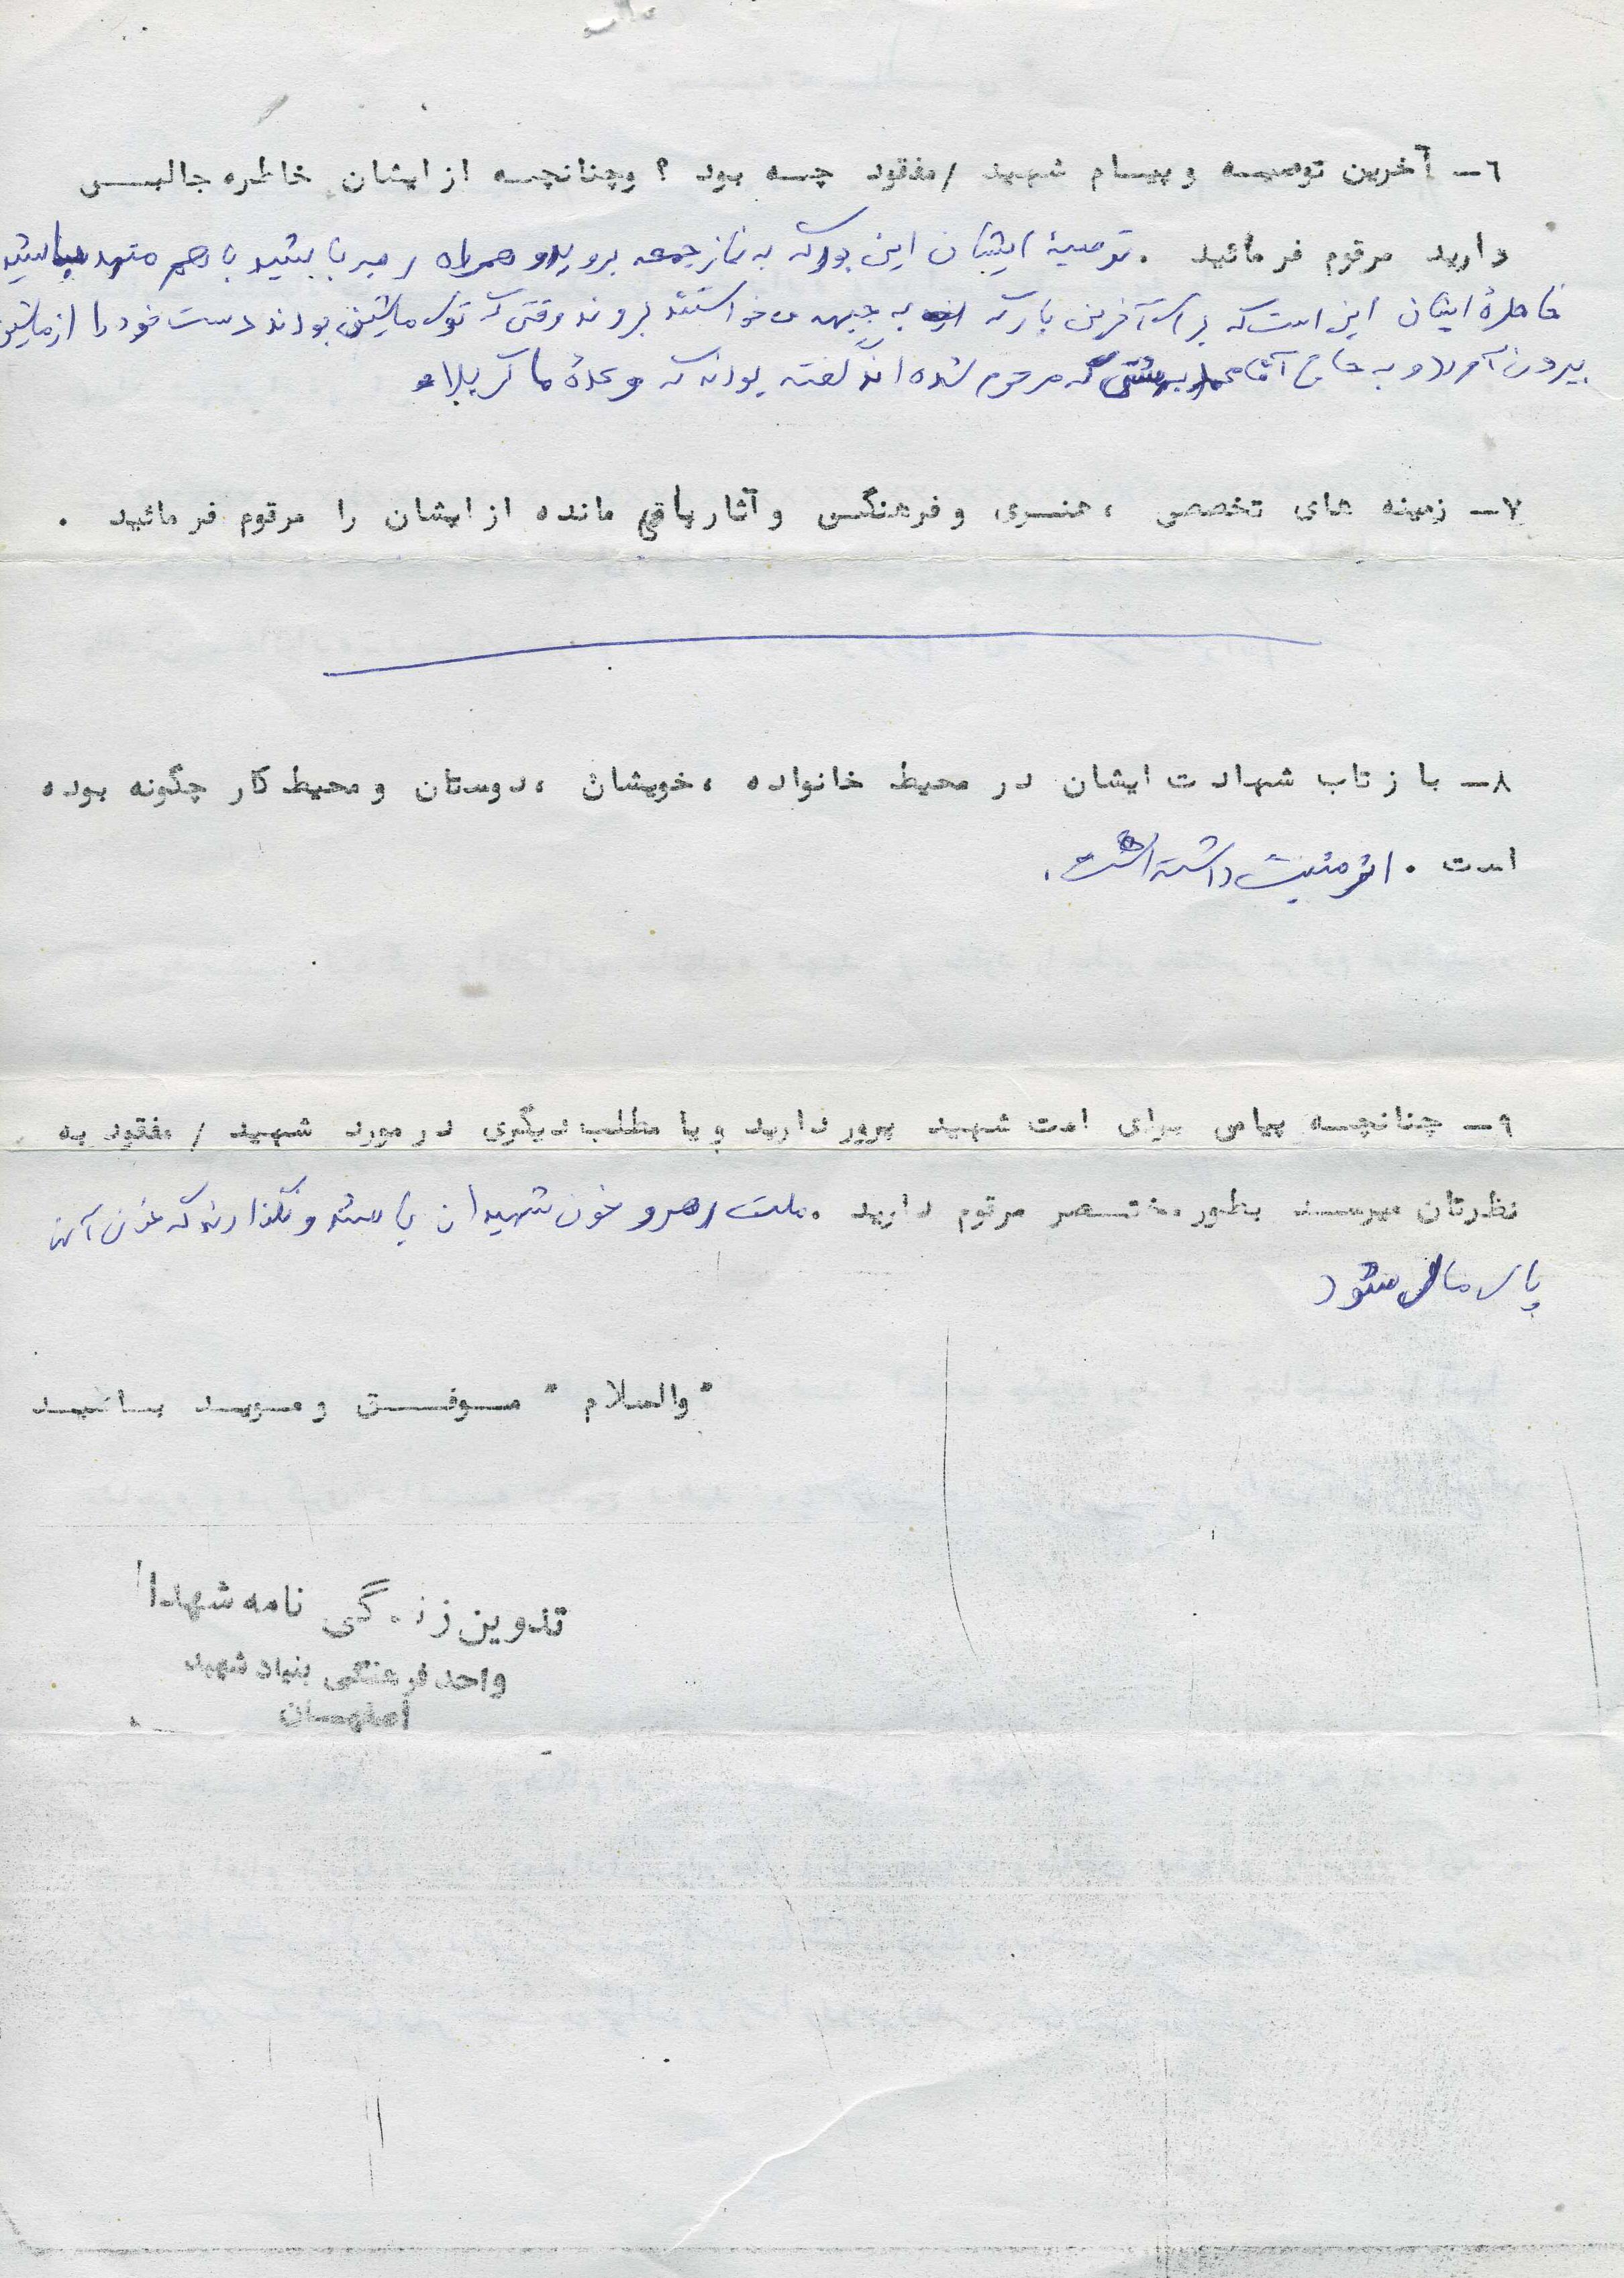 ٦ـ آخرین توصیه و پیام شهید / مفقود چه بود ؟ وچنانچه از ایشان خاطره جالبی
دارید مرقوم فرمائید . توصیهٔ ایشان این بود که به نماز جمعه بروید و همراه رهبر باشید با هم متحد باشید
خاطرهٔ ایشان این است که برای آخرین بار که به جبهه می خواستند بروند وقتی که توی ماشین بودند دست خود را از ماشین
بیرون آورد و به حاج آقا بهشتی که مرحوم شده اند گفته بودند که وعدهٔ ما کربلا
٧ـ زمینه های تخصصی ، هنری و فرهنگی و آثار باقی مانده از ایشان را مرقوم فرمائید .
٨ـ بازتاب شهادت ایشان در محیط خانواده ، خویشان ، دوستان و محیط کار چگونه بوده
است . اثر مثبت داشته است .
٩ـ چنانچه پیامی برای امت شهید پرور دارید و یا مطلب دیگری در مورد شهید / مفقود به
نظرتان میرسد بطور مختصر مرقوم دارید . ملت رهرو خون شهیدان باشند و نگذارند که خون آنها
پای مال شود
" والسلام " موفق و موید باشید
تدوین زندگی نامه شهدا
واحد فرهنگی بنیاد شهید
اصفهان